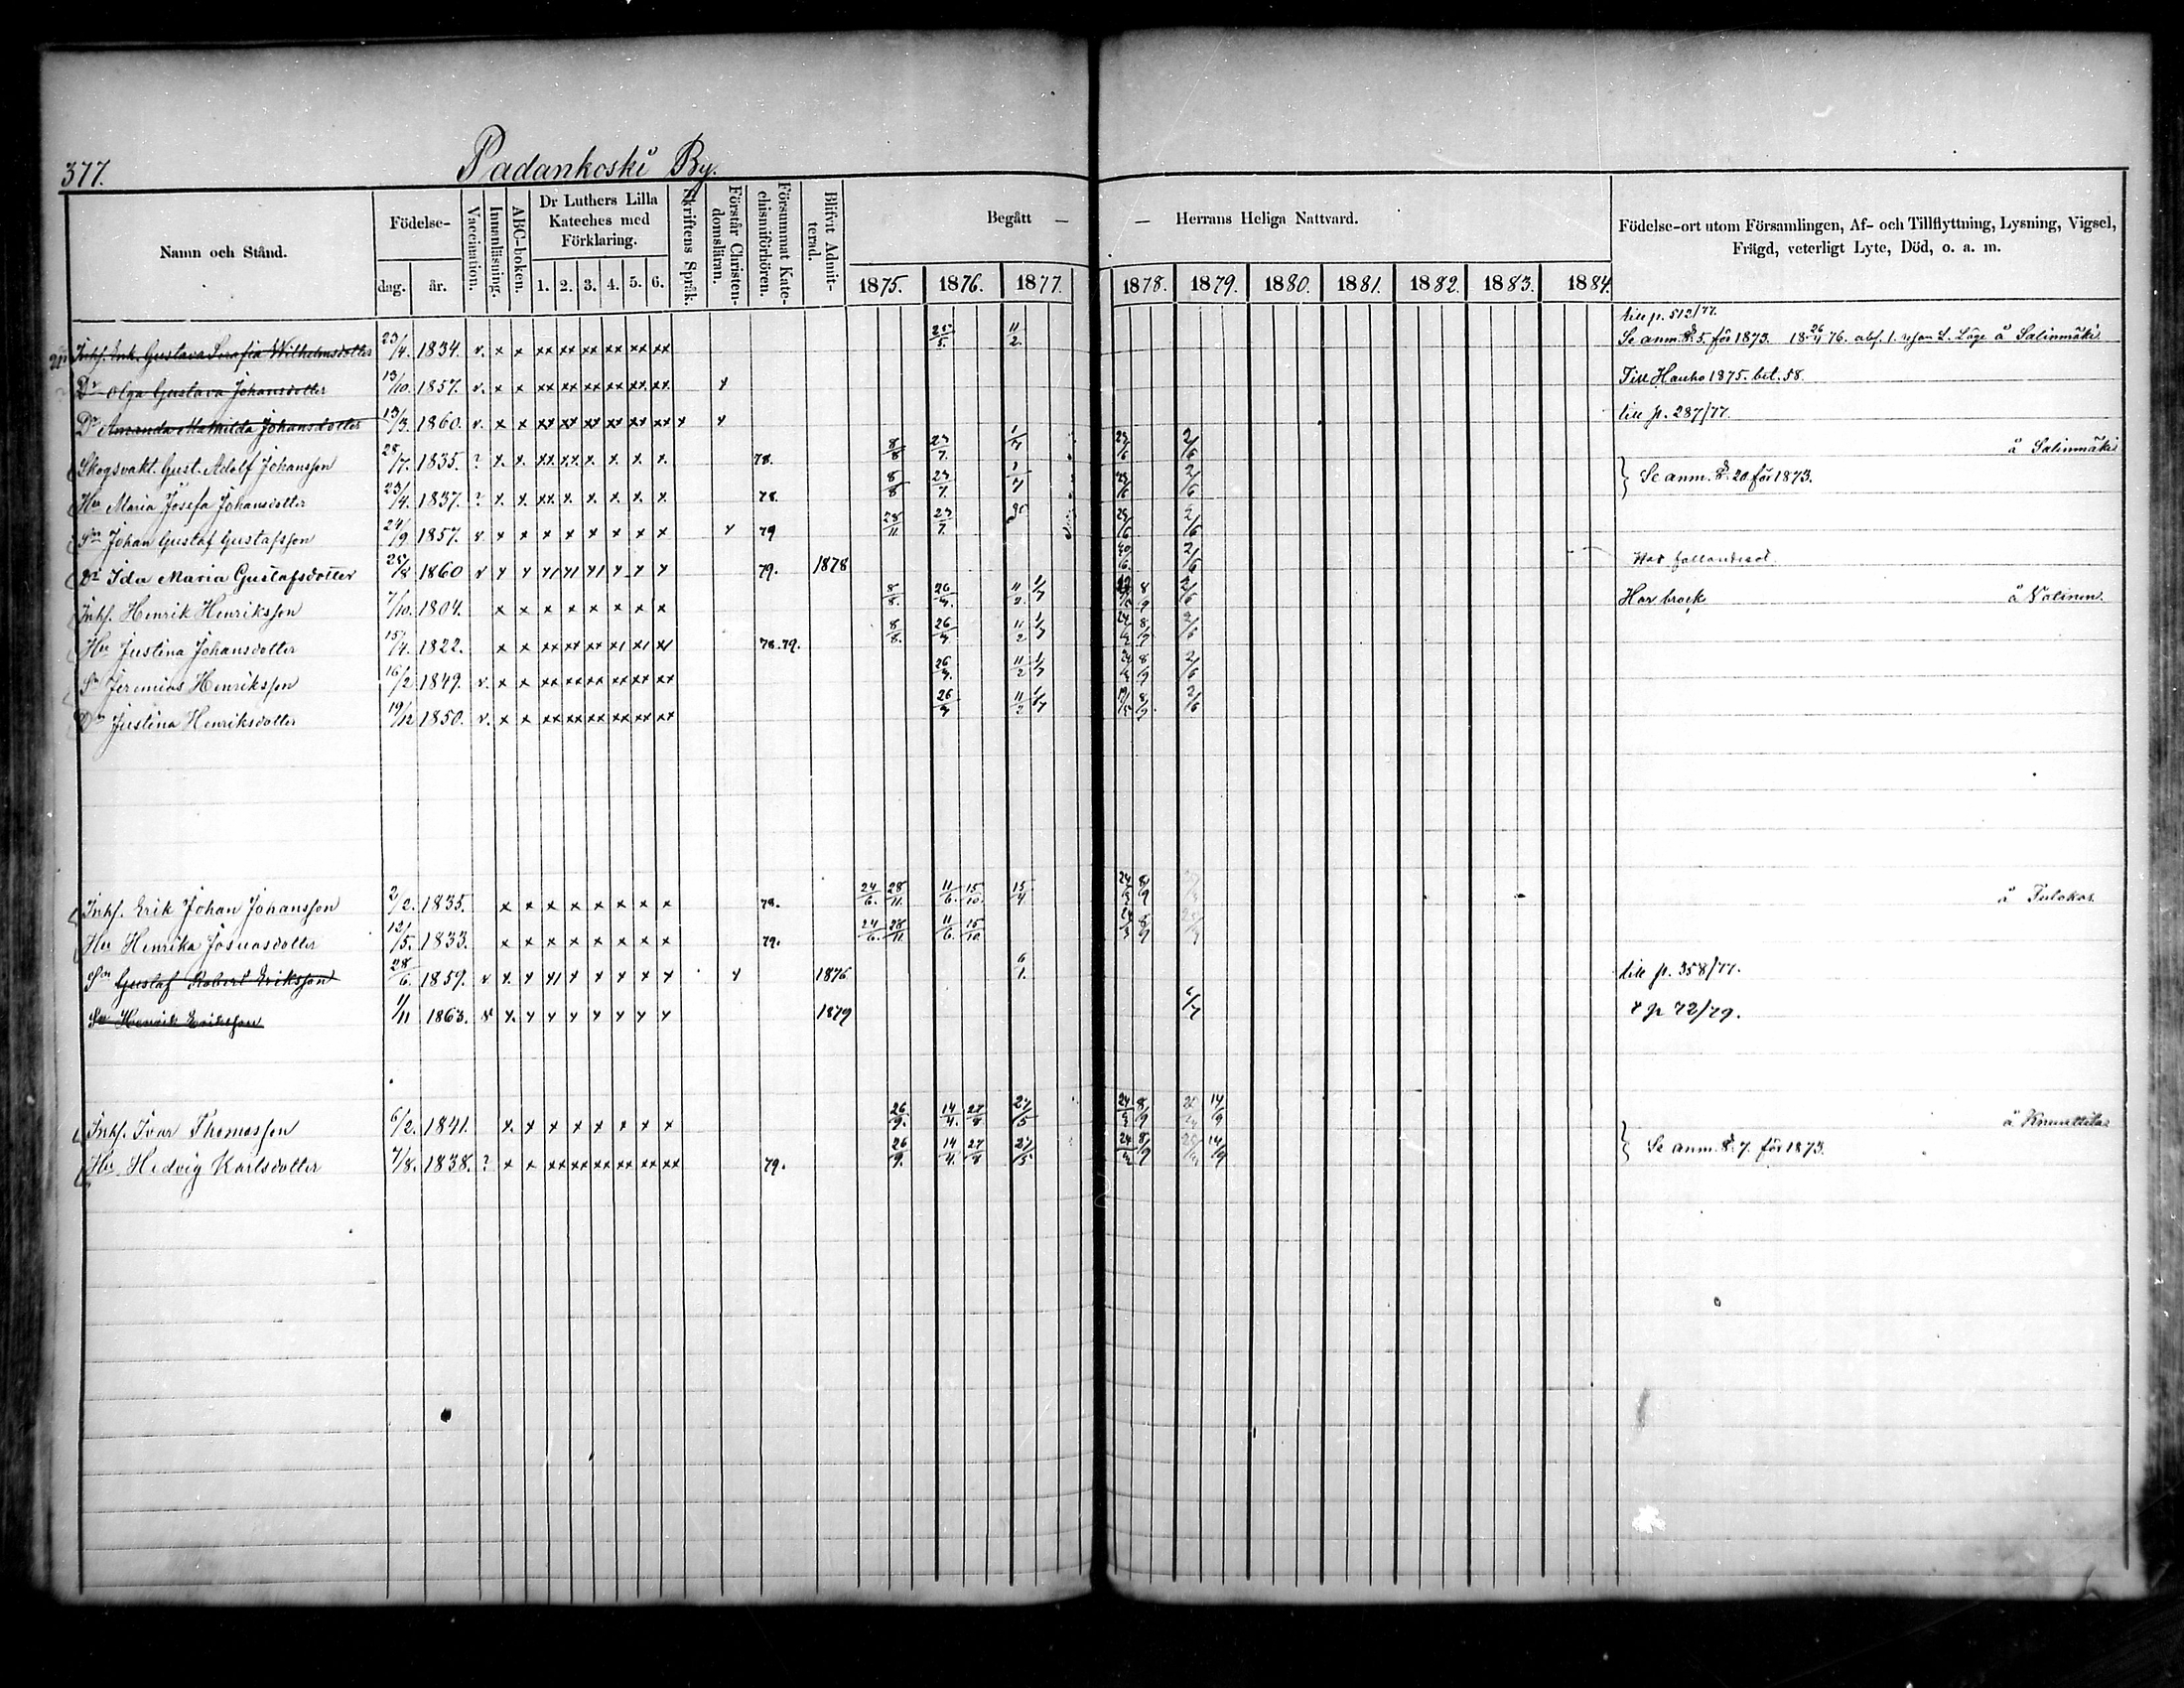 377.
Padankoski By.
Namn och Stånd.
Födelse-
dag. år.
Vaccination.
Innanläsning.
ABC-boken.
Dr Luthers Lilla Kateches med Förklaring.
1. 2. 3. 4. 5. 6.
Skriftens Språk.
Förstår Christendomsläran.
Försummat Katechismiförhören.
Blifvit Admitterad.
Begått — — Herrans Heliga Nattvard.
1875. 1876. 1877. 1878. 1879. 1880. 1881. 1882. 1883. 1884.
Födelse-ort utom Församlingen, Af- och Tillflyttning, Lysning, Vigsel,
Frägd, veterligt Lyte, Död, o. a. m.
till p. 512/77.
Inhs. Enk. Gustava Serafia Wilhelmsdotter 23/4. 1834. v. x x xx xx xx xx xx xx 25/5. 11/2. Se anm. 5. för 1873. å Salinmäki
Dr Olga Gustava Johansdotter 13/10. 1857. v. x x xx xx xx xx xx xx x Till Hauho 1875. bet. 58
Dr Amanda Mathilda Johansdotter 13/3. 1860. v. x x xx xx xx xx xx xx x x till p. 287/77.
Skogsvakt. Gust. Adolf Johansson 28/7. 1835. ? x. x. xx xx x. x. x. x. 78. 8/8 23/7. 1/7 23/6 2/6 å Salinmäki
Hu Maria Josefa Johansdotter 23/4. 1837. ? x. x. xx x. x. x. x. x. 78. 8/8 23/7. 1/7 23/6 2/6 Se anm. 20 för 1873.
Sn Johan Gustaf Gustafsson 24/9 1857. v. x x x x x x x x x 79 28/11. 23/7. 23/6 2/6
Dr Ida Maria Gustafsdotter 25/8 1860 v x x x x x x x x 79. 1878 30/6. 2/6 Har fallandesot
Inhs. Henrik Henriksson 7/10. 1804. x x x x x x x x 8/8. 26/3. 11/2. 1/7 8/9 2/6 Har brock å Nalinen.
Hu Justina Johansdotter 15/4. 1822. x x x x xx xx xx xx xx 78.79. 8/8. 26/3. 11/2 1/7 24/3 8/9 2/6
Sn Jeremias Henriksson 16/2. 1849. v. x x xx xx xx xx xx xx 26/3. 11/2 1/7 24/3 8/9 2/6
Dr Justina Henriksdotter 19/12 1850. v. x x xx xx xx xx xx xx 26/3 11/2 1/7 8/9 2/6
Inhs. Erik Johan Johansson 2/2. 1835. x x x x x x x x 78. 24/6. 28/11. 11/6. 15/10. 15/4 24/3 8/9 å Tulokas
Hu Henrika Josuasdotter 12/5. 1833. x x x x x x x x 79. 24/6. 28/11 11/6. 15/10 24/3 8/9
Sn Gustaf Robert Eriksson 28/6. 1859. v x. x x x x x x x x 1876 6/1. till p. 358/77.
Sn Henrik Eriksson 1/11 1863. v x. x x x x x x x 1879 6/7 t p 72/79.
Inhs. Ivar Thomasson 6/2. 1841. x. x x x x x x x 26/9. 14/4. 27/8 27/5 24/3 8/9 14/9 å Knuuttila
Hu Hedvig Karlsdotter 7/8. 1838. ? x x xx xx xx xx xx xx 79. 26/9. 14/4. 27/8 27/5 24/3 8/9 14/9 Se anm. 7. för 1873.